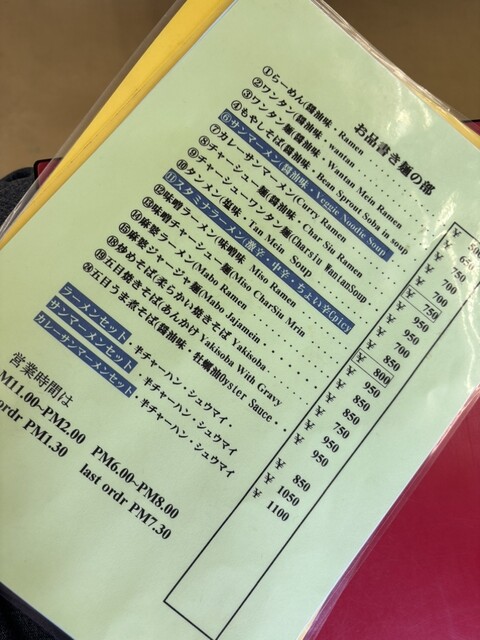 お品書き麺の部
①らーめん(醤油味・Ramen
②ワンタン(醤油味・wantan
③ワンタン麺(醤油味・Wantan Mein Ramen
④もやしそば(醤油味・Bean Sprouts Soba in soup
⑥サンマーメン(醤油味・Veggie Noodle Soup
⑦カレーサンマーメン(Curry Ramen
⑧チャーシュー麺(醤油味・Char Siu Ramen
⑨チャーシューワンタン麺(Charsiu WantanSoup
⑩タンメン(塩味・Tan Mein Soup
⑪スタミナラーメン(激辛・中辛・ちょい辛(pic)
⑫味噌ラーメン(味噌味 Miso Ramen
⑬味噌チャーシュー麺(Miso CharSiu Mein
⑭麻婆ラーメン(Mabo Ramen
⑮麻婆ジャージャ麺(Mabo Jajamein
⑱炒めそば(柔らかい焼きそば Yakisoba
⑲五目焼きそば(あんかけ Yakisoba With Gravy
⑳五目うま煮そば(醤油味・牡蠣油Oyster Sauce
ラーメンセット・半チャーハン・シュウマイ
サンマーメンセット・半チャーハン・シュウマイ
カレーサンマーメンセット・半チャーハン・シュウマイ
¥ 650
¥ 750
¥ 700
¥ 700
¥ 750
¥ 950
¥ 950
¥ 700
¥ 850
¥ 800
¥ 950
¥ 850
¥ 850
¥ 750
¥ 950
¥ 950
¥ 850
¥ 1050
¥ 1100
営業時間は
AM11.00~PM2.00 PM6.00~PM8.00
ordr PM1.30 last ordr PM7.30